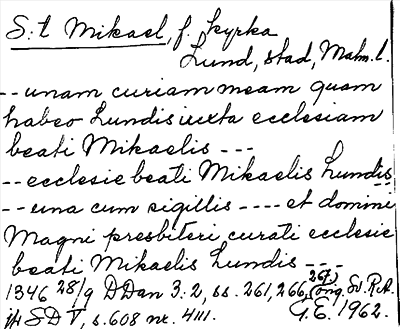 S:t Mikael, f. kyrka
Lund, stad, Malm. l.
-- unam curiam meam quam
habeo Lundis iuxta ecclesiam
beati Mikaelis ---
-- ecclesie beati Mikaelis Lundis
-- una cum sigillis ---- et domini
Magni presbiteri curati ecclesie
beati Mikaelis Lundis ----
1346 28/9 DDan 3:2, ss. 261, 266, 267, (orig. Sv. R.A.
jfr SD V, s. 608 nr. 4111. G.E. 1962.